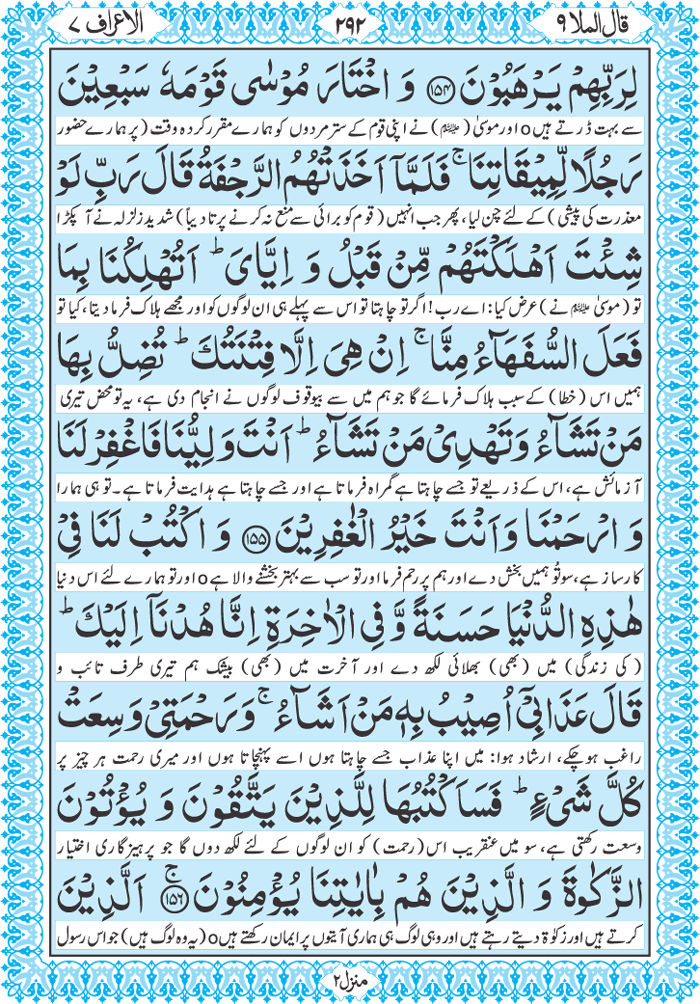 قال الملا ۹
۲۹۲
الاعراف ۷
لِرَبِّهِمْ يَرْهَبُوْنَ ﴿۱۵۴﴾ وَ اخْتَارَ مُوْسٰى قَوْمَهٗ سَبْعِيْنَ
سے بہت ڈرتے ہیںo اور موسیٰ (ﷺ) نے اپنی قوم کے ستر مردوں کو ہمارے مقرر کردہ وقت (پر ہمارے حضور
رَجُلًا لِّمِيْقَاتِنَا ۚ فَلَمَّاۤ اَخَذَتْهُمُ الرَّجْفَةُ قَالَ رَبِّ لَوْ
معذرت کی پیشی) کے لئے چن لیا، پھر جب انہیں (قوم کو برائی سے منع نہ کرنے پر تادیباً) شدید زلزلہ نے آ پکڑا
شِئْتَ اَهْلَكْتَهُمْ مِّنْ قَبْلُ وَ اِيَّايَ ؕ اَتُهْلِكُنَا بِمَا
تو (موسیٰ ﷺ نے) عرض کیا: اے رب! اگر تو چاہتا تو اس سے پہلے ہی ان لوگوں کو اور مجھے ہلاک فرما دیتا، کیا تو
فَعَلَ السُّفَهَآءُ مِنَّا ۚ اِنْ هِىَ اِلَّا فِتْنَتُكَ ؕ تُضِلُّ بِهَا
ہمیں اس (خطا) کے سبب ہلاک فرمائے گا جو ہم میں سے بیوقوف لوگوں نے انجام دی ہے، یہ تو محض تیری
مَنْ تَشَآءُ وَتَهْدِىْ مَنْ تَشَآءُ ؕ اَنْتَ وَلِيُّنَا فَاغْفِرْ لَنَا
آزمائش ہے، اس کے ذریعے تو جسے چاہتا ہے گمراہ فرماتا ہے اور جسے چاہتا ہے ہدایت فرماتا ہے۔ تو ہی ہمارا
وَ ارْحَمْنَا وَاَنْتَ خَيْرُ الْغٰفِرِيْنَ ﴿۱۵۵﴾ وَ اكْتُبْ لَنَا فِىْ
کارساز ہے، سو تُو ہمیں بخش دے اور ہم پر رحم فرما اور تو سب سے بہتر بخشنے والا ہےo اور تو ہمارے لئے اس دنیا
هٰذِهِ الدُّنْيَا حَسَنَةً وَّ فِى الْاٰخِرَةِ اِنَّا هُدْنَاۤ اِلَيْكَ ؕ
(کی زندگی) میں (بھی) بھلائی لکھ دے اور آخرت میں (بھی) بیشک ہم تیری طرف تائب و
قَالَ عَذَابِىْۤ اُصِيْبُ بِهٖ مَنْ اَشَآءُ ۚ وَرَحْمَتِىْ وَسِعَتْ
راغب ہوچکے، ارشاد ہوا: میں اپنا عذاب جسے چاہتا ہوں اسے پہنچاتا ہوں اور میری رحمت ہر چیز پر
كُلَّ شَىْءٍ ؕ فَسَاَكْتُبُهَا لِلَّذِيْنَ يَتَّقُوْنَ وَ يُؤْتُوْنَ
وسعت رکھتی ہے، سو میں عنقریب اس (رحمت) کو ان لوگوں کے لئے لکھ دوں گا جو پرہیزگاری اختیار
الزَّكٰوةَ وَ الَّذِيْنَ هُمْ بِاٰيٰتِنَا يُؤْمِنُوْنَ ۚ﴿۱۵۶﴾ اَلَّذِيْنَ
کرتے ہیں اور زکوٰۃ دیتے رہتے ہیں اور وہی لوگ ہی ہماری آیتوں پر ایمان رکھتے ہیںo (یہ وہ لوگ ہیں) جو اس رسول
منزل ۲